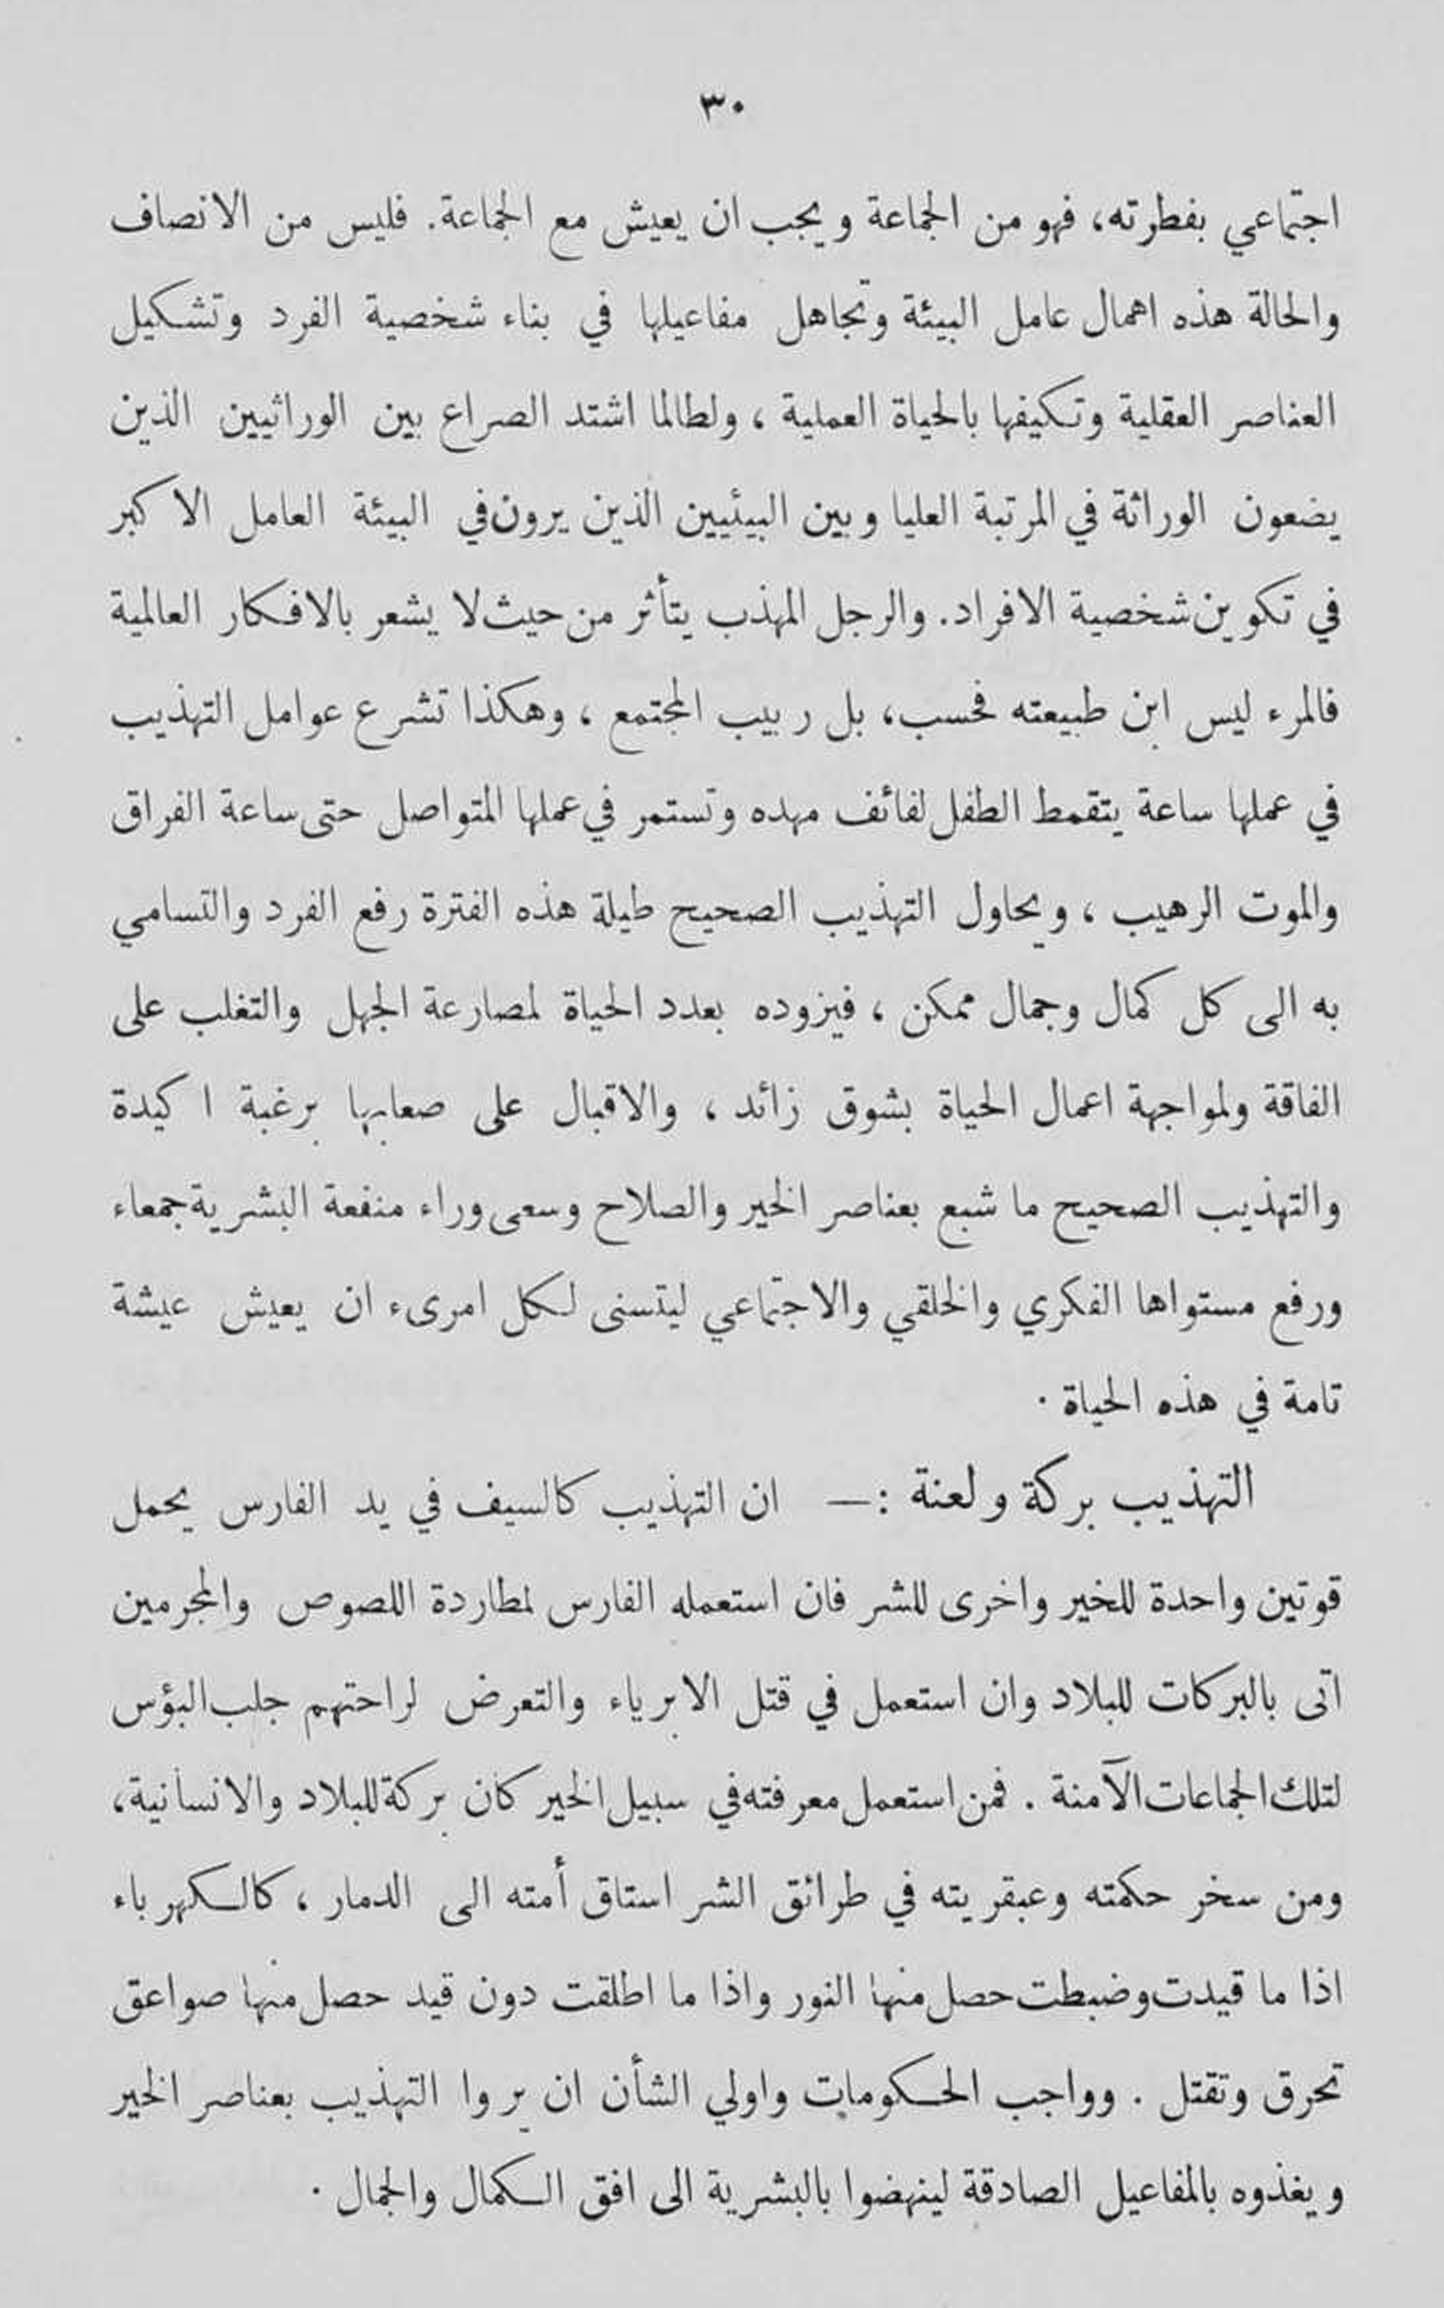 ٣٠
اجتماعي بفطرته، فهو من الجماعة ويجب ان يعيش مع الجماعة. فليس من الانصاف
والحالة هذه اهمال عامل البيئة وتجاهل مفاعيلها في بناء شخصية الفرد وتشكيل
العناصر العقلية وتكيفها بالحياة العملية ، ولطالما اشتد الصراع بين الوراثيين الذين
يضعون الوراثة في المرتبة العليا وبين البيئيين الذين يرون في البيئة العامل الاكبر
في تكوين شخصية الافراد. والرجل المهذب يتأثر من حيث لا يشعر بالافكار العالمية
فالمرء ليس ابن طبيعته فحسب، بل ربيب المجتمع ، وهكذا تشرع عوامل التهذيب
في عملها ساعة يتقمط الطفل لفائف مهده وتستمر في عملها المتواصل حتى ساعة الفراق
والموت الرهيب ، ويحاول التهذيب الصحيح طيلة هذه الفترة رفع الفرد والتسامي
به الى كل كمال وجمال ممكن ، فيزوده بعدد الحياة لمصارعة الجهل والتغلب على
الفاقة ولمواجهة اعمال الحياة بشوق زائد ، والاقبال على صعابها برغبة اكيدة
والتهذيب الصحيح ما شبع بعناصر الخير والصلاح وسعى وراء منفعة البشرية جمعاء
ورفع مستواها الفكري والخلقي والاجتماعي ليتسنى لكل امرىء ان يعيش عيشة
تامة في هذه الحياة .
التهذيب بركة ولعنة :— ان التهذيب كالسيف في يد الفارس يحمل
قوتين واحدة للخير واخرى للشر فان استعمله الفارس لمطاردة اللصوص والمجرمين
اتى بالبركات للبلاد وان استعمل في قتل الابرياء والتعرض لراحتهم جلب البؤس
لتلك الجماعات الآمنة . فمن استعمل معرفته في سبيل الخير كان بركة للبلاد والانسانية،
ومن سخر حكمته وعبقريته في طرائق الشر استاق أمته الى الدمار ، كالكهرباء
اذا ما قيدت وضبطت حصل منها النور واذا ما اطلقت دون قيد حصل منها صواعق
تحرق وتقتل . وواجب الحكومات واولي الشأن ان يروا التهذيب بعناصر الخير
ويغذوه بالمفاعيل الصادقة لينهضوا بالبشرية الى افق الكمال والجمال .